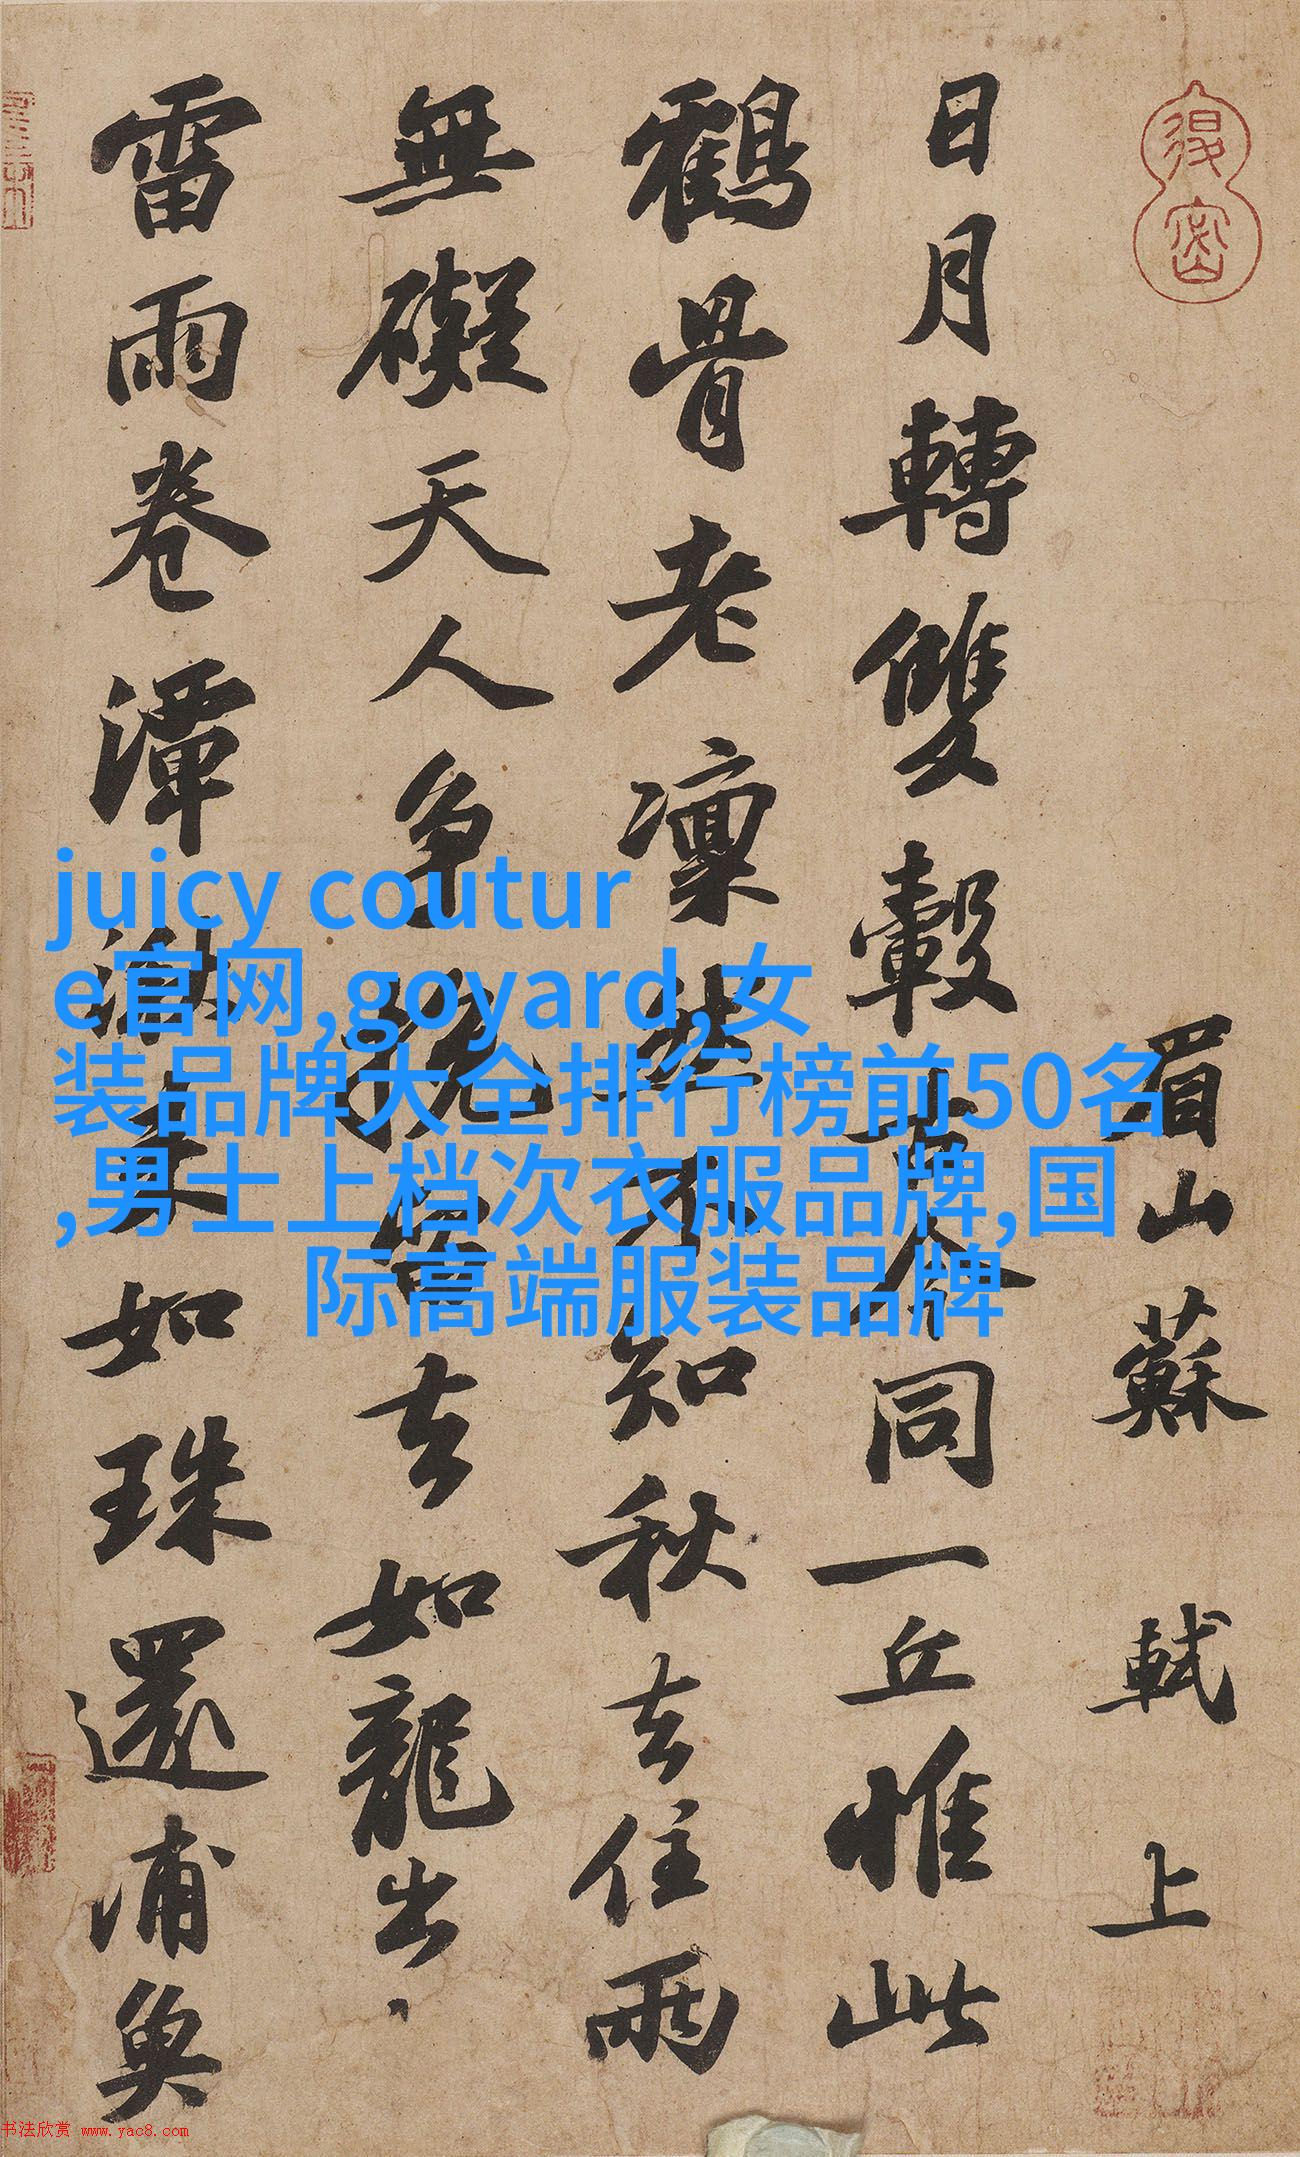 眉山蘇 軾 上
日月轉雙轂古今同一丘惟此
鶴骨老凜然不知秋去住兩
無礙天人争挽留去如龍出
雷雨卷潭湫来如珠還浦魚
juicy coutur
e官网,goyard,女
装品牌大全排行榜前50名
,男士上档次衣服品牌,国
际高端服装品牌
书法欣赏 www.yac8.com